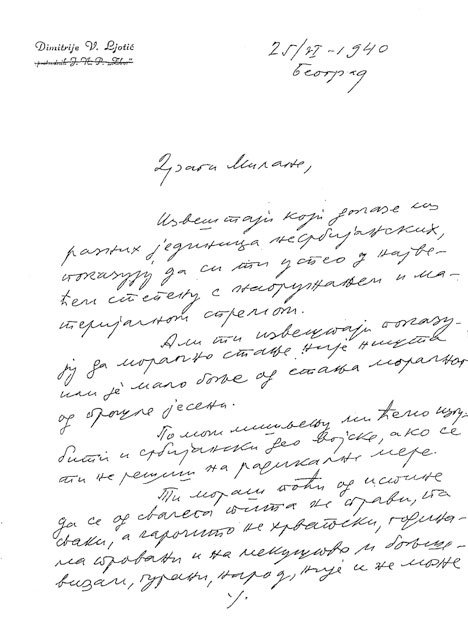 Dimitrije V. Ljotić
25/VI-1940
Београд
Драги Милане,
Извештаји који долазе из
разних јединица несрбијанских,
показују да си ти успео у најве-
ћем степену с наоружањем и ма-
теријалном спремом.
Али ти извештаји показу-
ју да морално стање није ништа
или је мало боље од стања моралног
од прошле јесени.
По мом мишљењу ми ћемо изгу-
бити и србијански део војске, ако се
ти не решиш на радикалне мере.
Ти мораш поћи од истине
да се од свачега пита не прави, та
сваки, а нарочито не хрватски, година-
ма трован и на мекуштво и бољше-
визам, гурани, народ, није и не може
./.